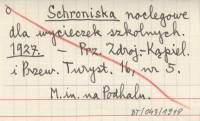 Schroniska noclegowe
dla wycieczek szkolnych.
1927. — Prz. Zdroj.-Kąpiel.
i Przew. Turyst. 16, nr 5.
M. in. na Podhalu.
BT/043/1918